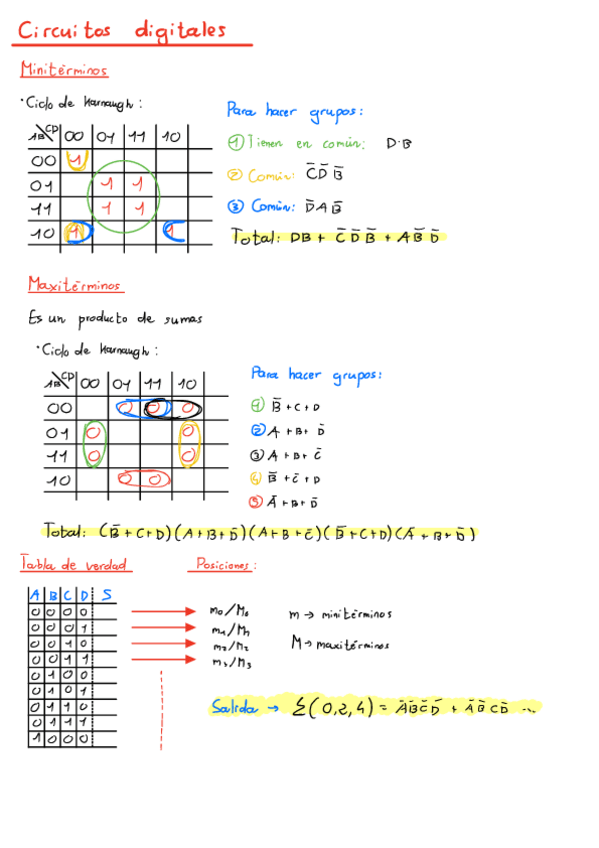 Circuitos digitales
Minitérminos
· Ciclo de Karnaugh:
AB\CD 00 01 11 10
00 1
01 1 1
11 1 1
10 1 1
Para hacer grupos:
① Tienen en común: D·B
② Común: C̄ D̄ B̄
③ Común: D̄ A B̄
Total: DB + C̄ D̄ B̄ + A B̄ D̄
Maxitérminos
Es un producto de sumas
· Ciclo de Karnaugh:
AB\CD 00 01 11 10
00 0 0 0
01 0 0
11 0 0
10 0 0
Para hacer grupos:
① B̄ + C + D
② A + B + D̄
③ A + B + C̄
④ B̄ + C̄ + D
⑤ Ā + B + D̄
Total: (B̄ + C + D) (A + B + D̄) (A + B + C̄) (B̄ + C + D) (Ā + B + D̄)
Tabla de verdad
Posiciones:
A B C D S
0 0 0 0 m0/M0
0 0 0 1 m1/M1
0 0 1 0 m2/M2
0 0 1 1 m3/M3
0 1 0 0
0 1 0 1
0 1 1 0
0 1 1 1
1 0 0 0
m → minitérminos
M → maxitérminos
Salida → Σ(0,2,4) = Ā B̄ C̄ D̄ + Ā B̄ C D̄ ...